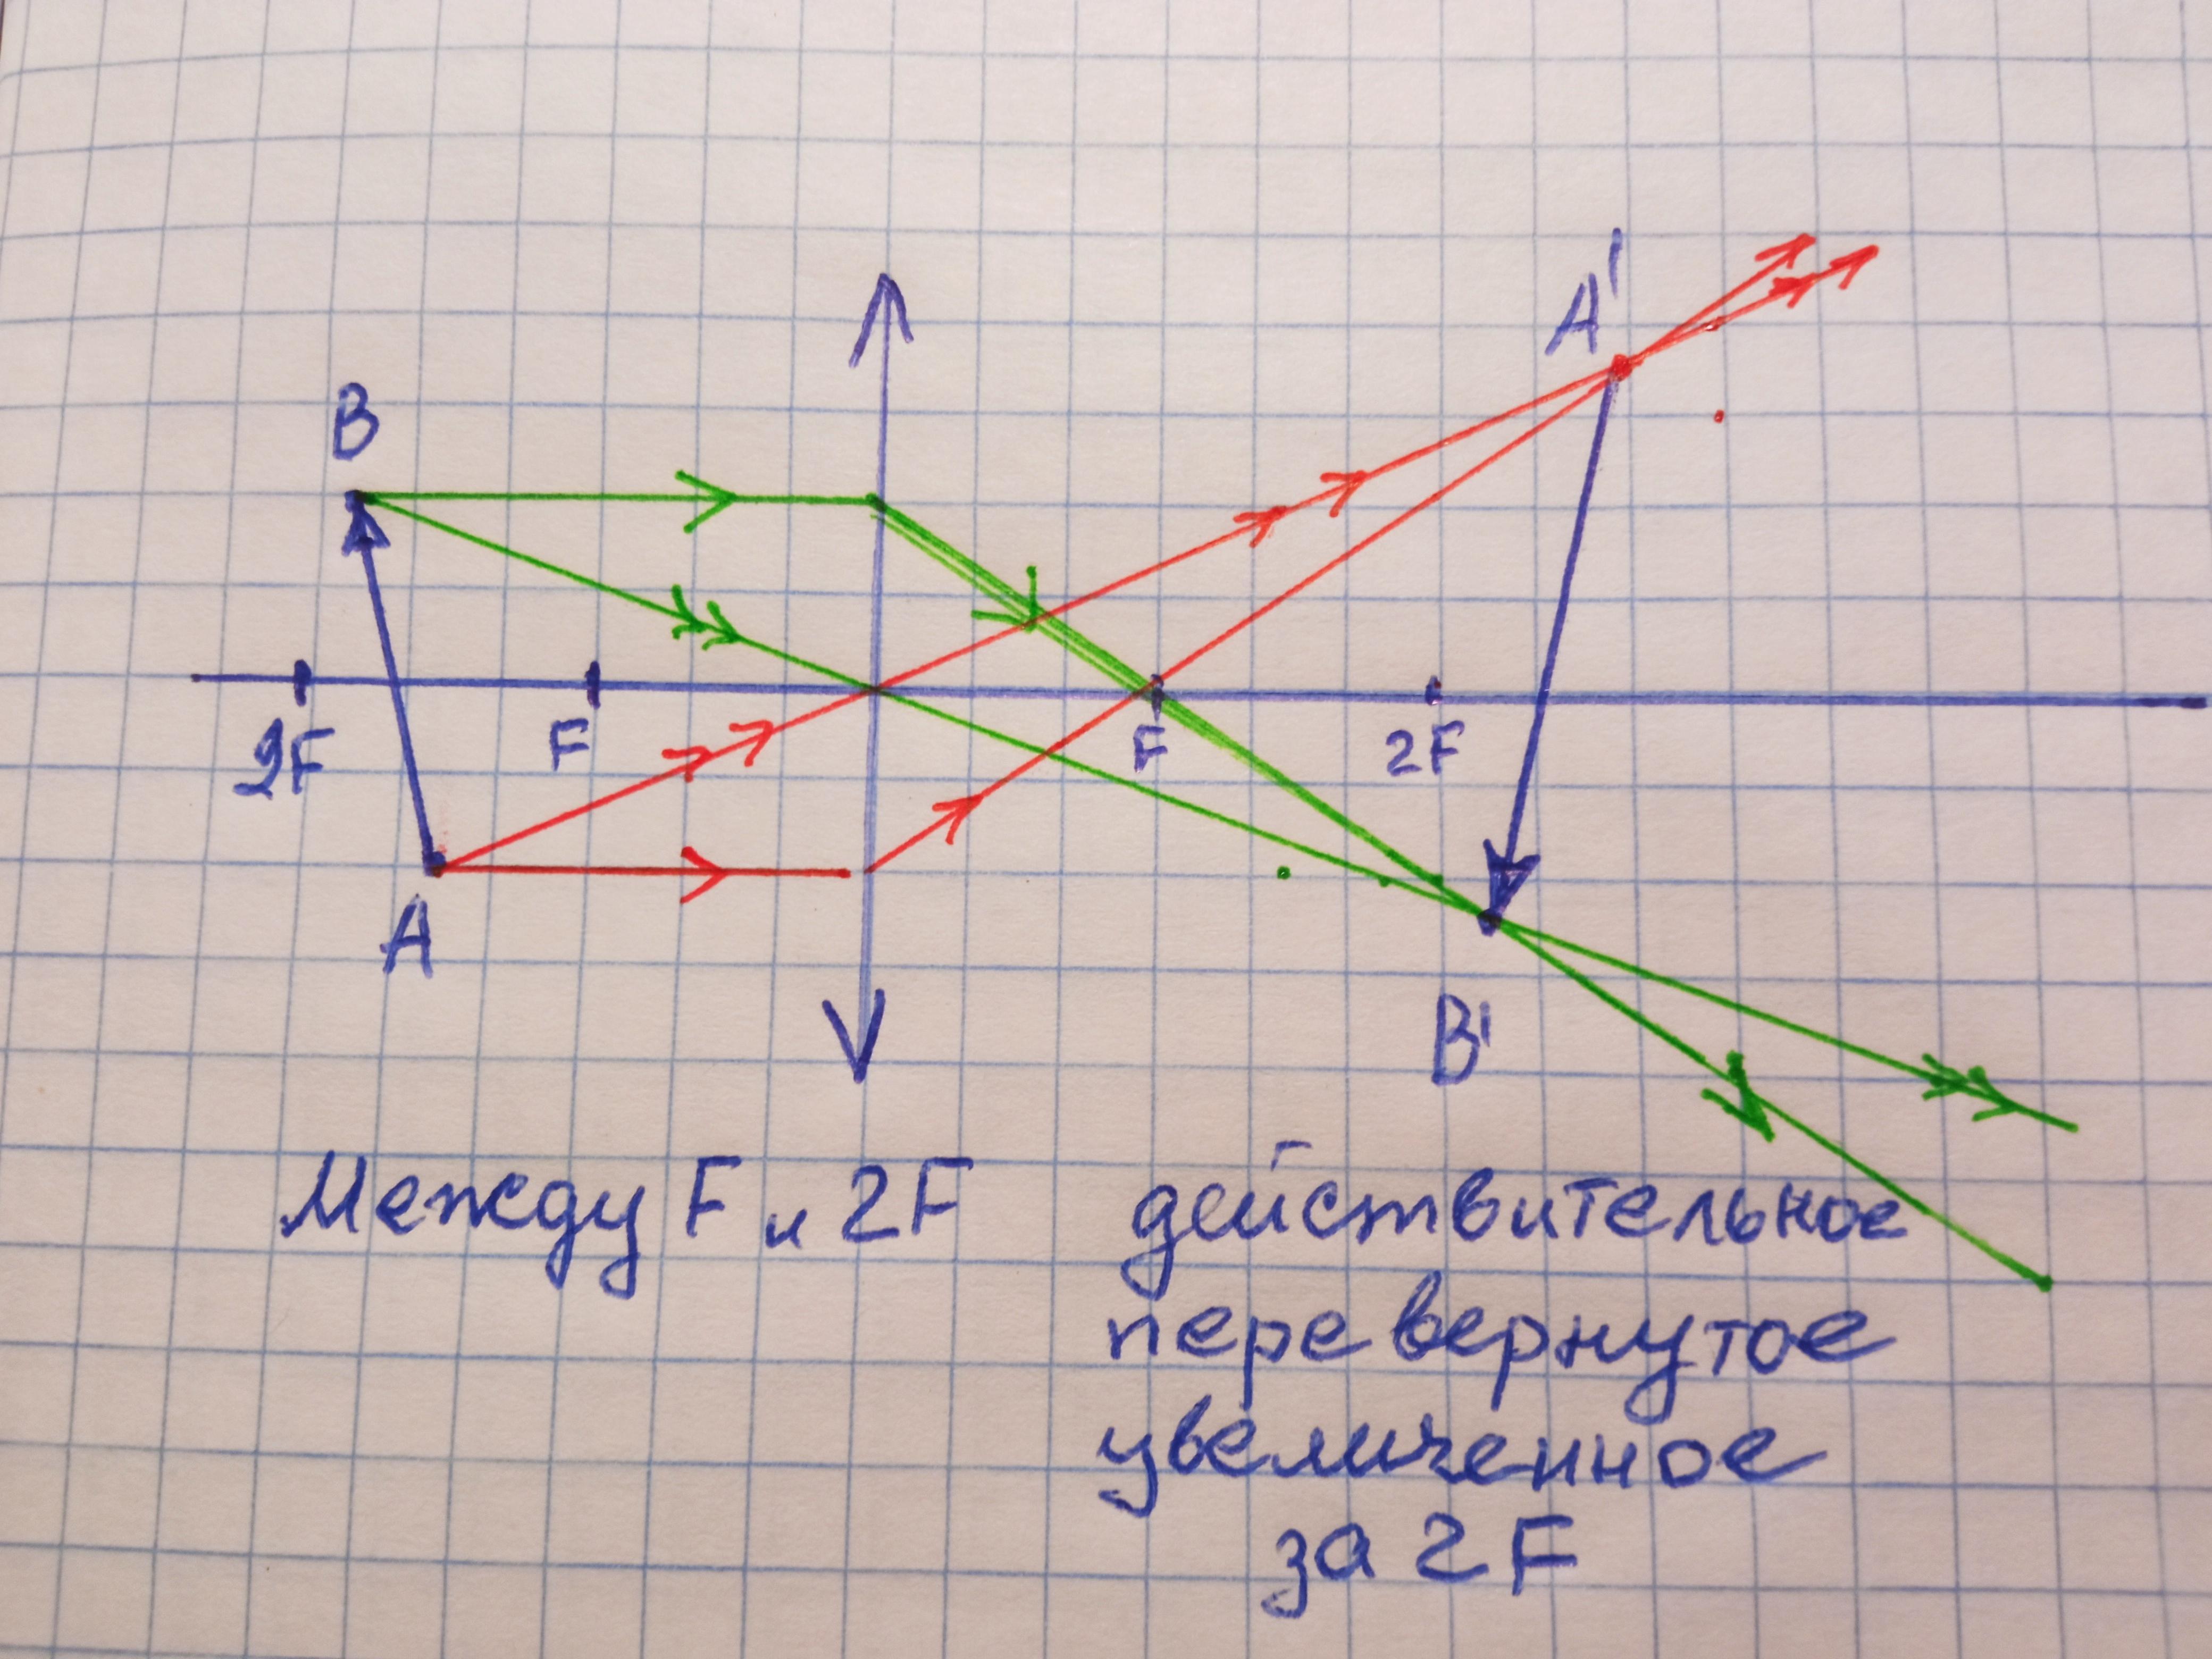 A'
B
2F F F 2F
A
B'
Между F и 2F действительное
перевернутое
увеличенное
за 2F